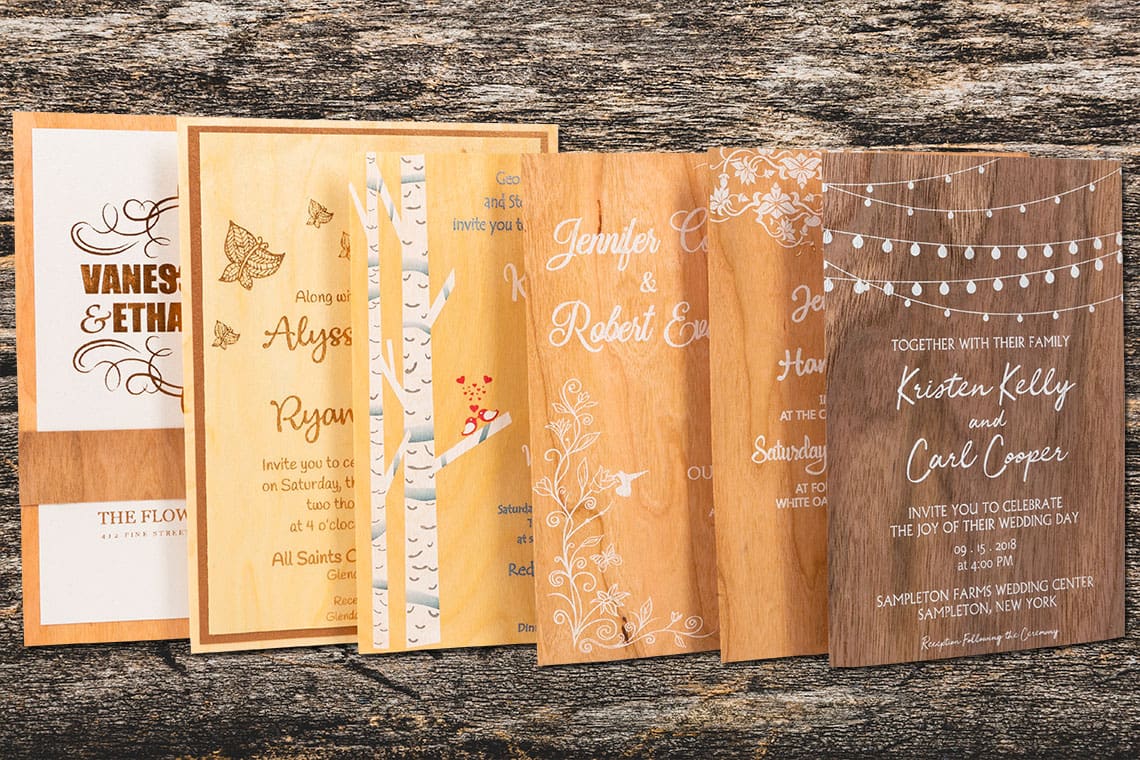 VANES
&ETHA
THE FLOW
412 PINE STREET
Along wi
Alyss
Ryan
Invite you to ce
on Saturday, th
two thou
at 4 o'cloc
All Saints C
Glend
Rece
Glenda
Geo
and Ste
invite you to
K
Saturda
T
at s
Red
Dinn
Jennifer Co
&
Robert Ew
OU
A
Je
Han
I
AT THE C
Saturday
AT FO
WHITE OA
TOGETHER WITH THEIR FAMILY
Kristen Kelly
and
Carl Cooper
INVITE YOU TO CELEBRATE
THE JOY OF THEIR WEDDING DAY
09 . 15 . 2018
at 4:00 PM
SAMPLETON FARMS WEDDING CENTER
SAMPLETON, NEW YORK
Reception Following the Ceremony